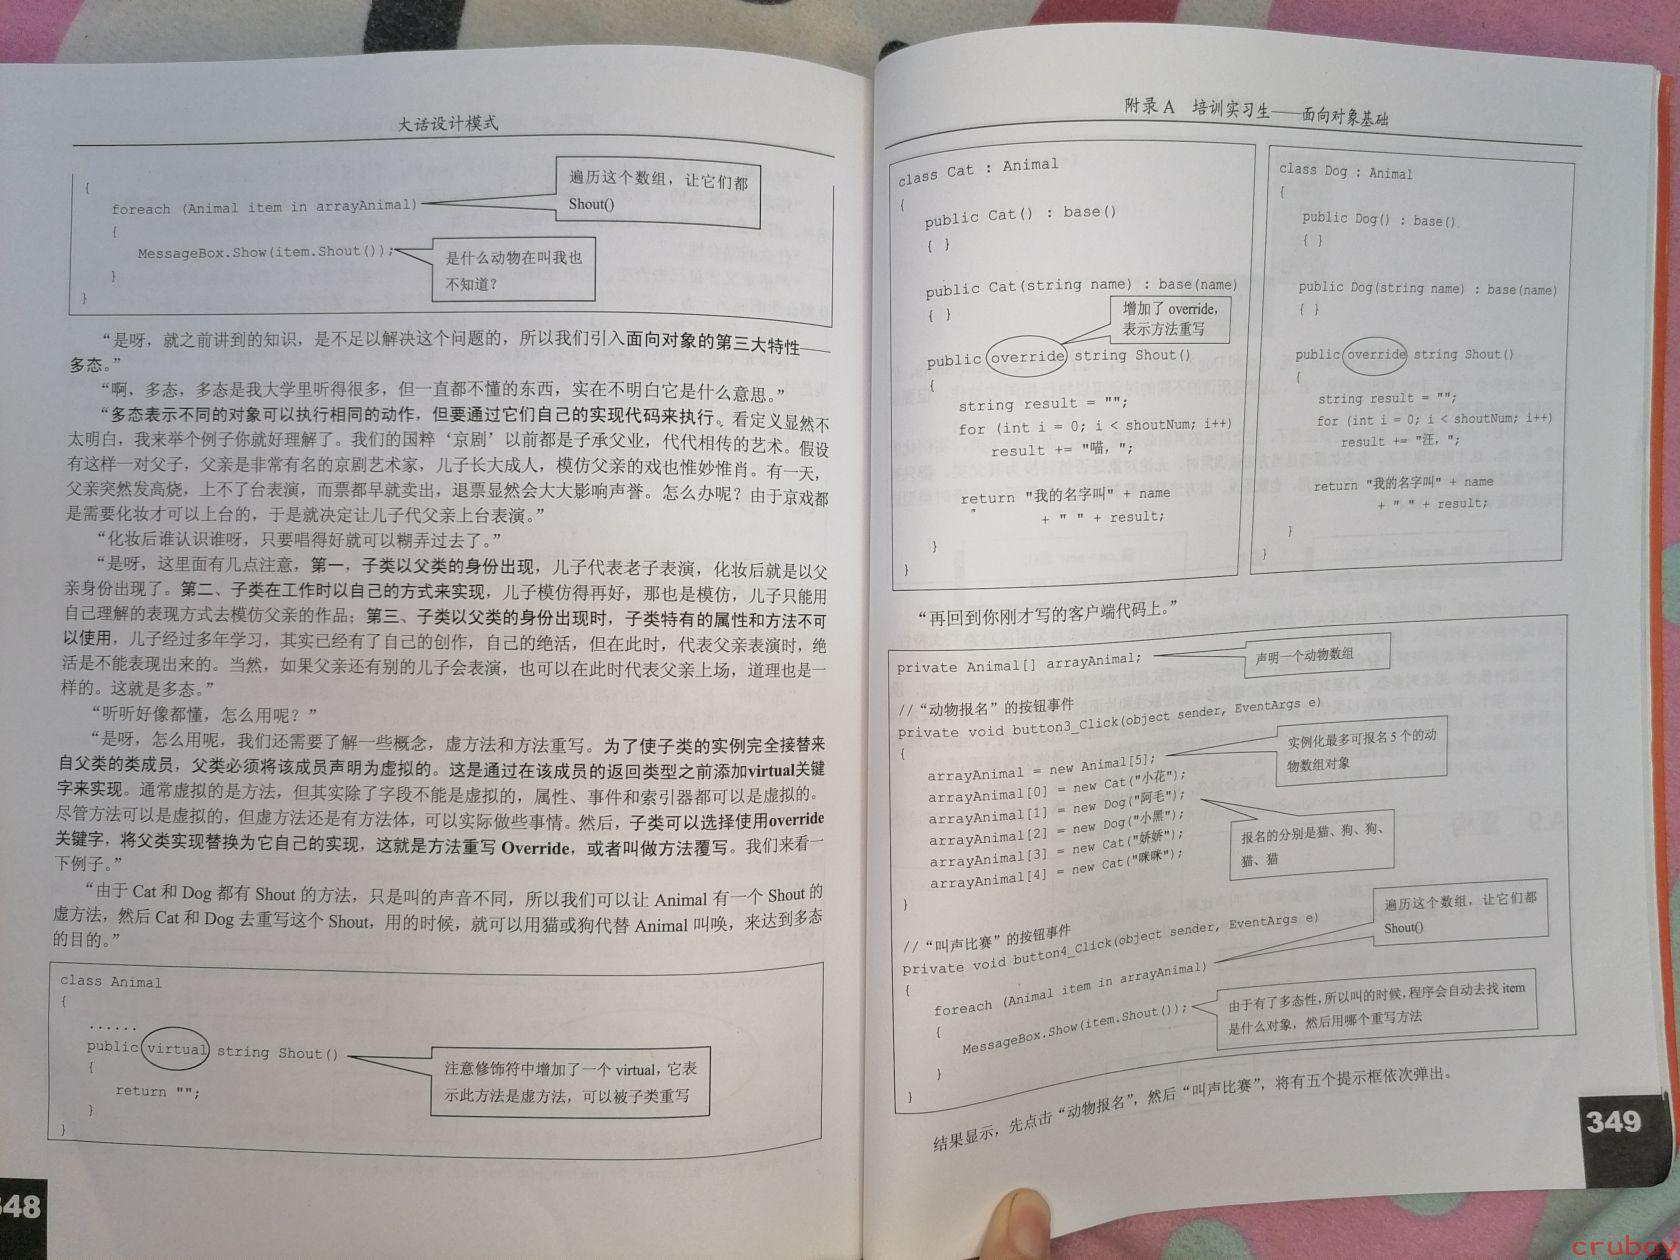 大话设计模式
{
foreach (Animal item in arrayAnimal)
遍历这个数组，让它们都
Shout()
{
MessageBox.Show(item.Shout());
是什么动物在叫我也
不知道？
}
}
“是呀，就之前讲到的知识，是不足以解决这个问题的，所以我们引入面向对象的第三大特性——
多态。”
“啊，多态，多态是我大学里听得很多，但一直都不懂的东西，实在不明白它是什么意思。”
“多态表示不同的对象可以执行相同的动作，但要通过它们自己的实现代码来执行。看定义显然不
太明白，我来举个例子你就好理解了。我们的国粹‘京剧’以前都是子承父业，代代相传的艺术。假设
有这样一对父子，父亲是非常有名的京剧艺术家，儿子长大成人，模仿父亲的戏也惟妙惟肖。有一天，
父亲突然发高烧，上不了台表演，而票都早就卖出，退票显然会大大影响声誉。怎么办呢？由于京戏都
是需要化妆才可以上台的，于是就决定让儿子代父亲上台表演。”
“化妆后谁认识谁呀，只要唱得好就可以糊弄过去了。”
“是呀，这里面有几点注意，第一，子类以父类的身份出现，儿子代表老子表演，化妆后就是以父
亲身份出现了。第二、子类在工作时以自己的方式来实现，儿子模仿得再好，那也是模仿，儿子只能用
自己理解的表现方式去模仿父亲的作品；第三、子类以父类的身份出现时，子类特有的属性和方法不可
以使用，儿子经过多年学习，其实已经有了自己的创作，自己的绝活，但在此时，代表父亲表演时，绝
活是不能表现出来的。当然，如果父亲还有别的儿子会表演，也可以在此时代表父亲上场，道理也是一
样的。这就是多态。”
“听听好像都懂，怎么用呢？”
“是呀，怎么用呢，我们还需要了解一些概念，虚方法和方法重写。为了使子类的实例完全接替来
自父类的类成员，父类必须将该成员声明为虚拟的。这是通过在该成员的返回类型之前添加virtual关键
字来实现。通常虚拟的是方法，但其实除了字段不能是虚拟的，属性、事件和索引器都可以是虚拟的。
尽管方法可以是虚拟的，但虚方法还是有方法体，可以实际做些事情。然后，子类可以选择使用override
关键字，将父类实现替换为它自己的实现，这就是方法重写 Override，或者叫做方法覆写。我们来看一
下例子。”
“由于 Cat 和 Dog 都有 Shout 的方法，只是叫的声音不同，所以我们可以让 Animal 有一个 Shout 的
虚方法，然后 Cat 和 Dog 去重写这个 Shout，用的时候，就可以用猫或狗代替 Animal 叫唤，来达到多态
的目的。”
class Animal
{
......
public virtual string Shout()
{
return "";
}
}
注意修饰符中增加了一个 virtual，它表
示此方法是虚方法，可以被子类重写
348
附录 A 培训实习生——面向对象基础
class Cat : Animal
{
public Cat() : base()
{ }
public Cat(string name) : base(name)
{ }
增加了 override，
表示方法重写
public override string Shout()
{
string result = "";
for (int i = 0; i < shoutNum; i++)
result += "喵，";
return "我的名字叫" + name
+ " " + result;
}
}
class Dog : Animal
{
public Dog() : base()
{ }
public Dog(string name) : base(name)
{ }
public override string Shout()
{
string result = "";
for (int i = 0; i < shoutNum; i++)
result += "汪，";
return "我的名字叫" + name
+ " " + result;
}
}
“再回到你刚才写的客户端代码上。”
private Animal[] arrayAnimal;
声明一个动物数组
//“动物报名”的按钮事件
private void button3_Click(object sender, EventArgs e)
{
arrayAnimal = new Animal[5];
实例化最多可报名 5 个的动
物数组对象
arrayAnimal[0] = new Cat("小花");
arrayAnimal[1] = new Dog("阿毛");
arrayAnimal[2] = new Dog("小黑");
arrayAnimal[3] = new Cat("娇娇");
arrayAnimal[4] = new Cat("咪咪");
报名的分别是猫、狗、狗、
猫、猫
}
//“叫声比赛”的按钮事件
private void button4_Click(object sender, EventArgs e)
{
foreach (Animal item in arrayAnimal)
遍历这个数组，让它们都
Shout()
{
MessageBox.Show(item.Shout());
由于有了多态性，所以叫的时候，程序会自动去找 item
是什么对象，然后用哪个重写方法
}
}
结果显示，先点击“动物报名”，然后“叫声比赛”，将有五个提示框依次弹出。
349
cruboy